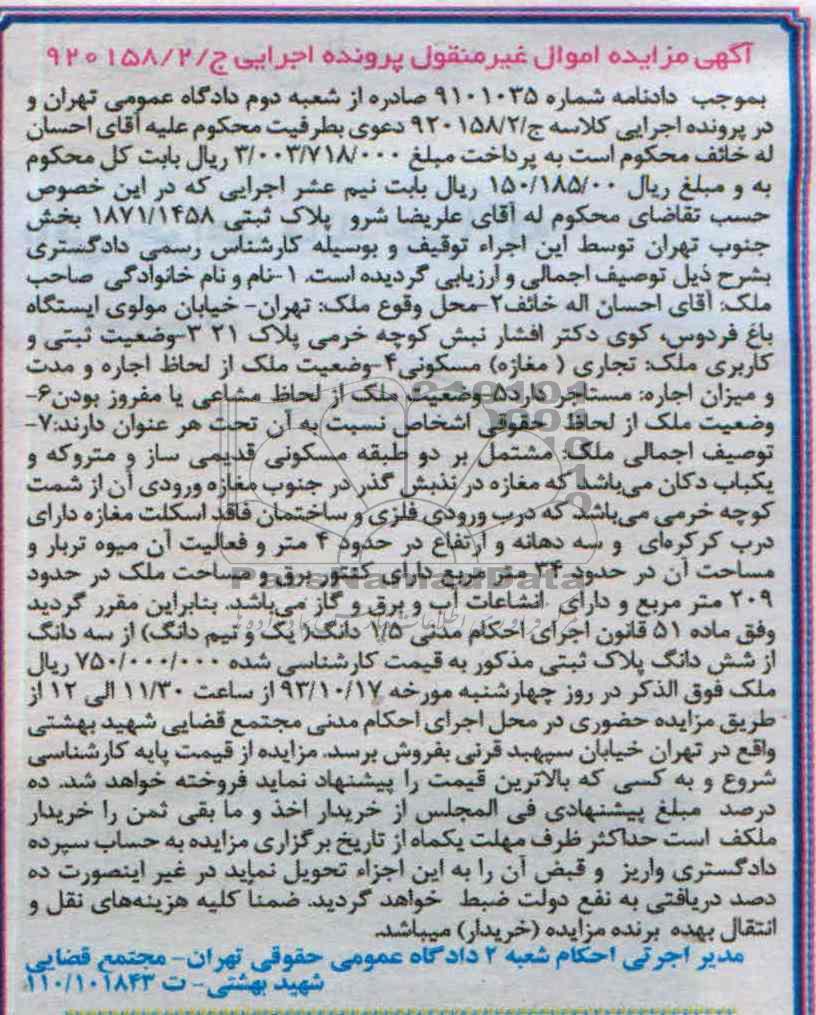 آگهی مزایده اموال غیرمنقول پرونده اجرایی ج/۹۲۰۱۵۸/۲
بموجب دادنامه شماره ۹۱۰۱۰۳۵ صادره از شعبه دوم دادگاه عمومی تهران و
در پرونده اجرایی کلاسه ج/۹۲۰۱۵۸/۲ دعوی بطرفیت محکوم علیه آقای احسان
له خائف محکوم است به پرداخت مبلغ ۳/۰۰۳/۷۱۸/۰۰۰ ریال بابت کل محکوم
به و مبلغ ریال ۱۵۰/۱۸۵/۰۰ ریال بابت نیم عشر اجرایی که در این خصوص
حسب تقاضای محکوم له آقای علریضا شرو پلاک ثبتی ۱۸۷۱/۱۴۵۸ بخش
جنوب تهران توسط این اجراء توقیف و بوسیله کارشناس رسمی دادگستری
بشرح ذیل توصیف اجمالی و ارزیابی گردیده است. ۱-نام و نام خانوادگی صاحب
ملک: آقای احسان اله خائف۲-محل وقوع ملک: تهران- خیابان مولوی ایستگاه
باغ فردوس، کوی دکتر افشار نبش کوچه خرمی پلاک ۲۱ ۳-وضعیت ثبتی و
کاربری ملک: تجاری ( مغازه) مسکونی۴-وضعیت ملک از لحاظ اجاره و مدت
و میزان اجاره: مستاجر دارد۵-وضعیت ملک از لحاظ مشاعی یا مفروز بودن۶-
وضعیت ملک از لحاظ حقوقی اشخاص نسبت به آن تحت هر عنوان دارند:۷-
توصیف اجمالی ملک: مشتمل بر دو طبقه مسکونی قدیمی ساز و متروکه و
یکباب دکان می‌باشد که مغازه در نذبش گذر در جنوب مغازه ورودی آن از شمت
کوچه خرمی می‌باشد که درب ورودی فلزی و ساختمان فاقد اسکلت مغازه دارای
درب کرکره‌ای و سه دهانه و ارتفاع در حدود ۴ متر و فعالیت آن میوه تربار و
مساحت آن در حدود ۳۴ متر مربع دارای کنتور برق و مساحت ملک در حدود
۲۰۹ متر مربع و دارای انشاعات آب و برق و گاز می‌باشد. بنابراین مقرر گردید
وفق ماده ۵۱ قانون اجرای احکام مدنی ۱/۵ دانگ( یک و نیم دانگ) از سه دانگ
از شش دانگ پلاک ثبتی مذکور به قیمت کارشناسی شده ۷۵۰/۰۰۰/۰۰۰ ریال
ملک فوق الذکر در روز چهارشنبه مورخه ۹۳/۱۰/۱۷ از ساعت ۱۱/۳۰ الی ۱۲ از
طریق مزایده حضوری در محل اجرای احکام مدنی مجتمع قضایی شهید بهشتی
واقع در تهران خیابان سپهبد قرنی بفروش برسد. مزایده از قیمت پایه کارشناسی
شروع و به کسی که بالاترین قیمت را پیشنهاد نماید فروخته خواهد شد. ده
درصد مبلغ پیشنهادی فی المجلس از خریدار اخذ و ما بقی ثمن را خریدار
ملکف است حداکثر ظرف مهلت یکماه از تاریخ برگزاری مزایده به حساب سپرده
دادگستری واریز و قبض آن را به این اجزاء تحویل نماید در غیر اینصورت ده
دصد دریافتی به نفع دولت ضبط خواهد گردید. ضمنا کلیه هزینه‌های نقل و
انتقال بهده برنده مزایده (خریدار) میباشد.
مدیر اجرتی احکام شعبه ۲ دادگاه عمومی حقوقی تهران- مجتمع قضایی
شهید بهشتی- ت ۱۱۰/۱۰۱۸۴۳
ParsNamadData